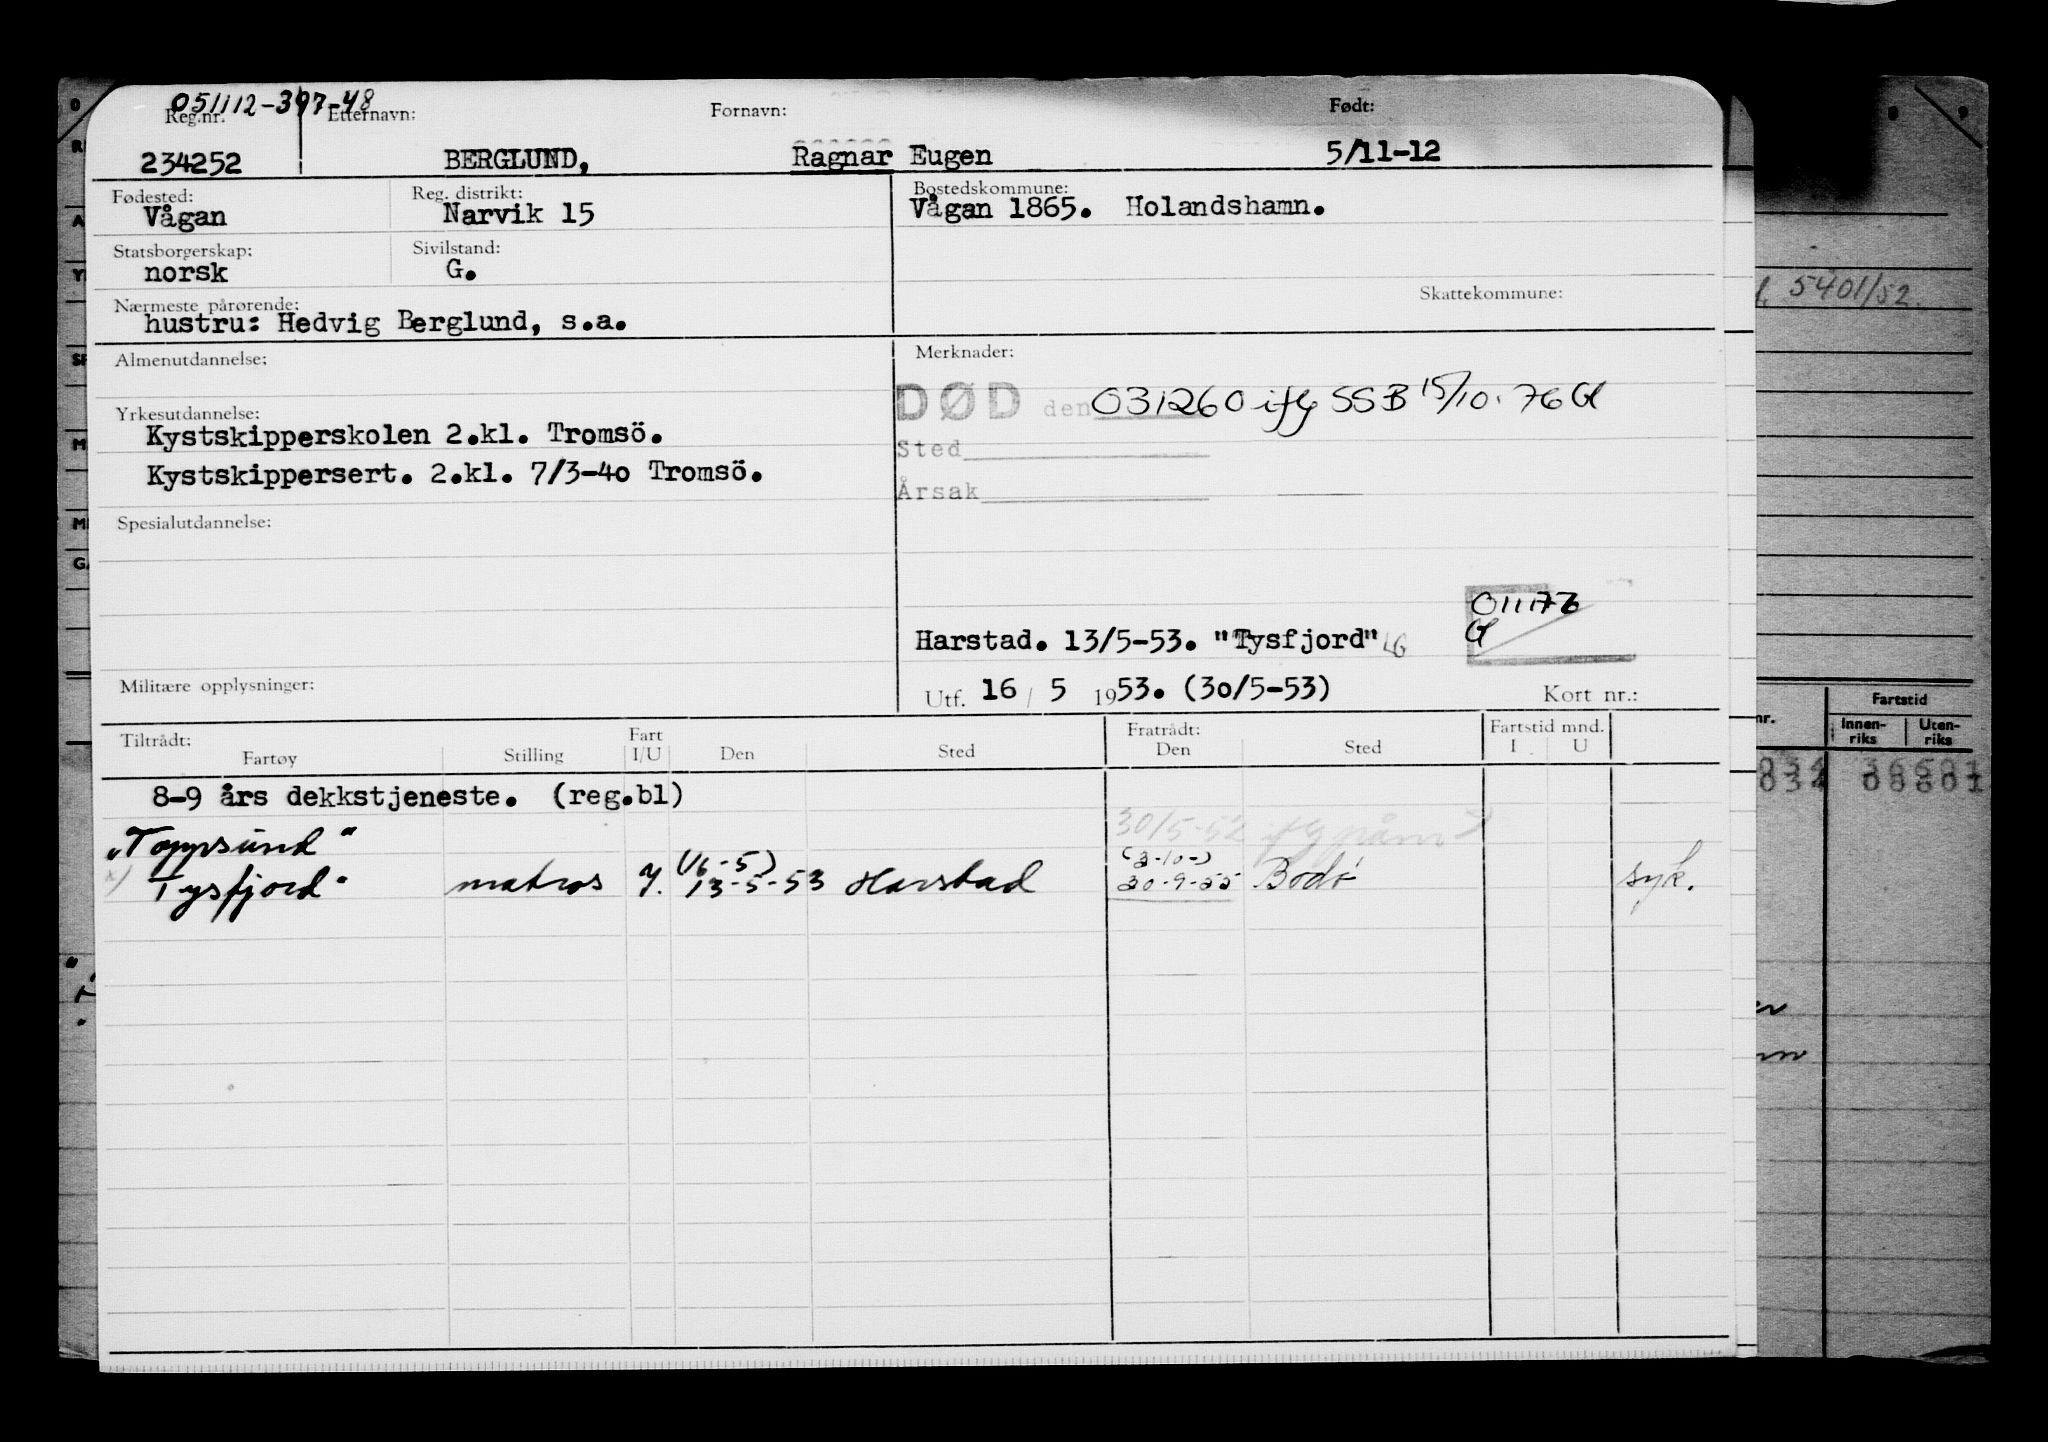 051112-397-48
Reg.nr. Etternavn: Fornavn: Født:
234252 BERGLUND, Ragnar Eugen 5/11-12
Fødested: Reg. distrikt: Bostedskommune:
Vågan Narvik 15 Vågan 1865. Holandshamn.
Statsborgerskap: Sivilstand:
norsk G.
Skattekommune:
Nærmeste pårørende:
hustru: Hedvig Berglund, s.a.
Almenutdannelse: Merknader:
DØD den 031260 ifg SSB 15/10.76 Gl
Yrkesutdannelse:
Kystskipperskolen 2.kl. Tromsö.
Sted
Kystskippersert. 2.kl. 7/3-40 Tromsö.
Årsak
Spesialutdannelse:
011176
Gl
Harstad. 13/5-53. "Tysfjord" LG
Militære opplysninger:
Utf. 16 / 5 1953. (30/5-53) Kort nr.:
Tiltrådt: Fart Fratrådt: Fartstid mnd.
Fartøy Stilling I/U Den Sted Den Sted I U
8-9 års dekkstjeneste. (reg.bl)
„Toppsund" 30/5-52 ifg
(16-5) (3-10-)
Tysfjord" matros I. 13-5-53 Harstad 30-9-55 Bodø syk.
5401/52.
Fartstid
Innen-riks Uten-riks